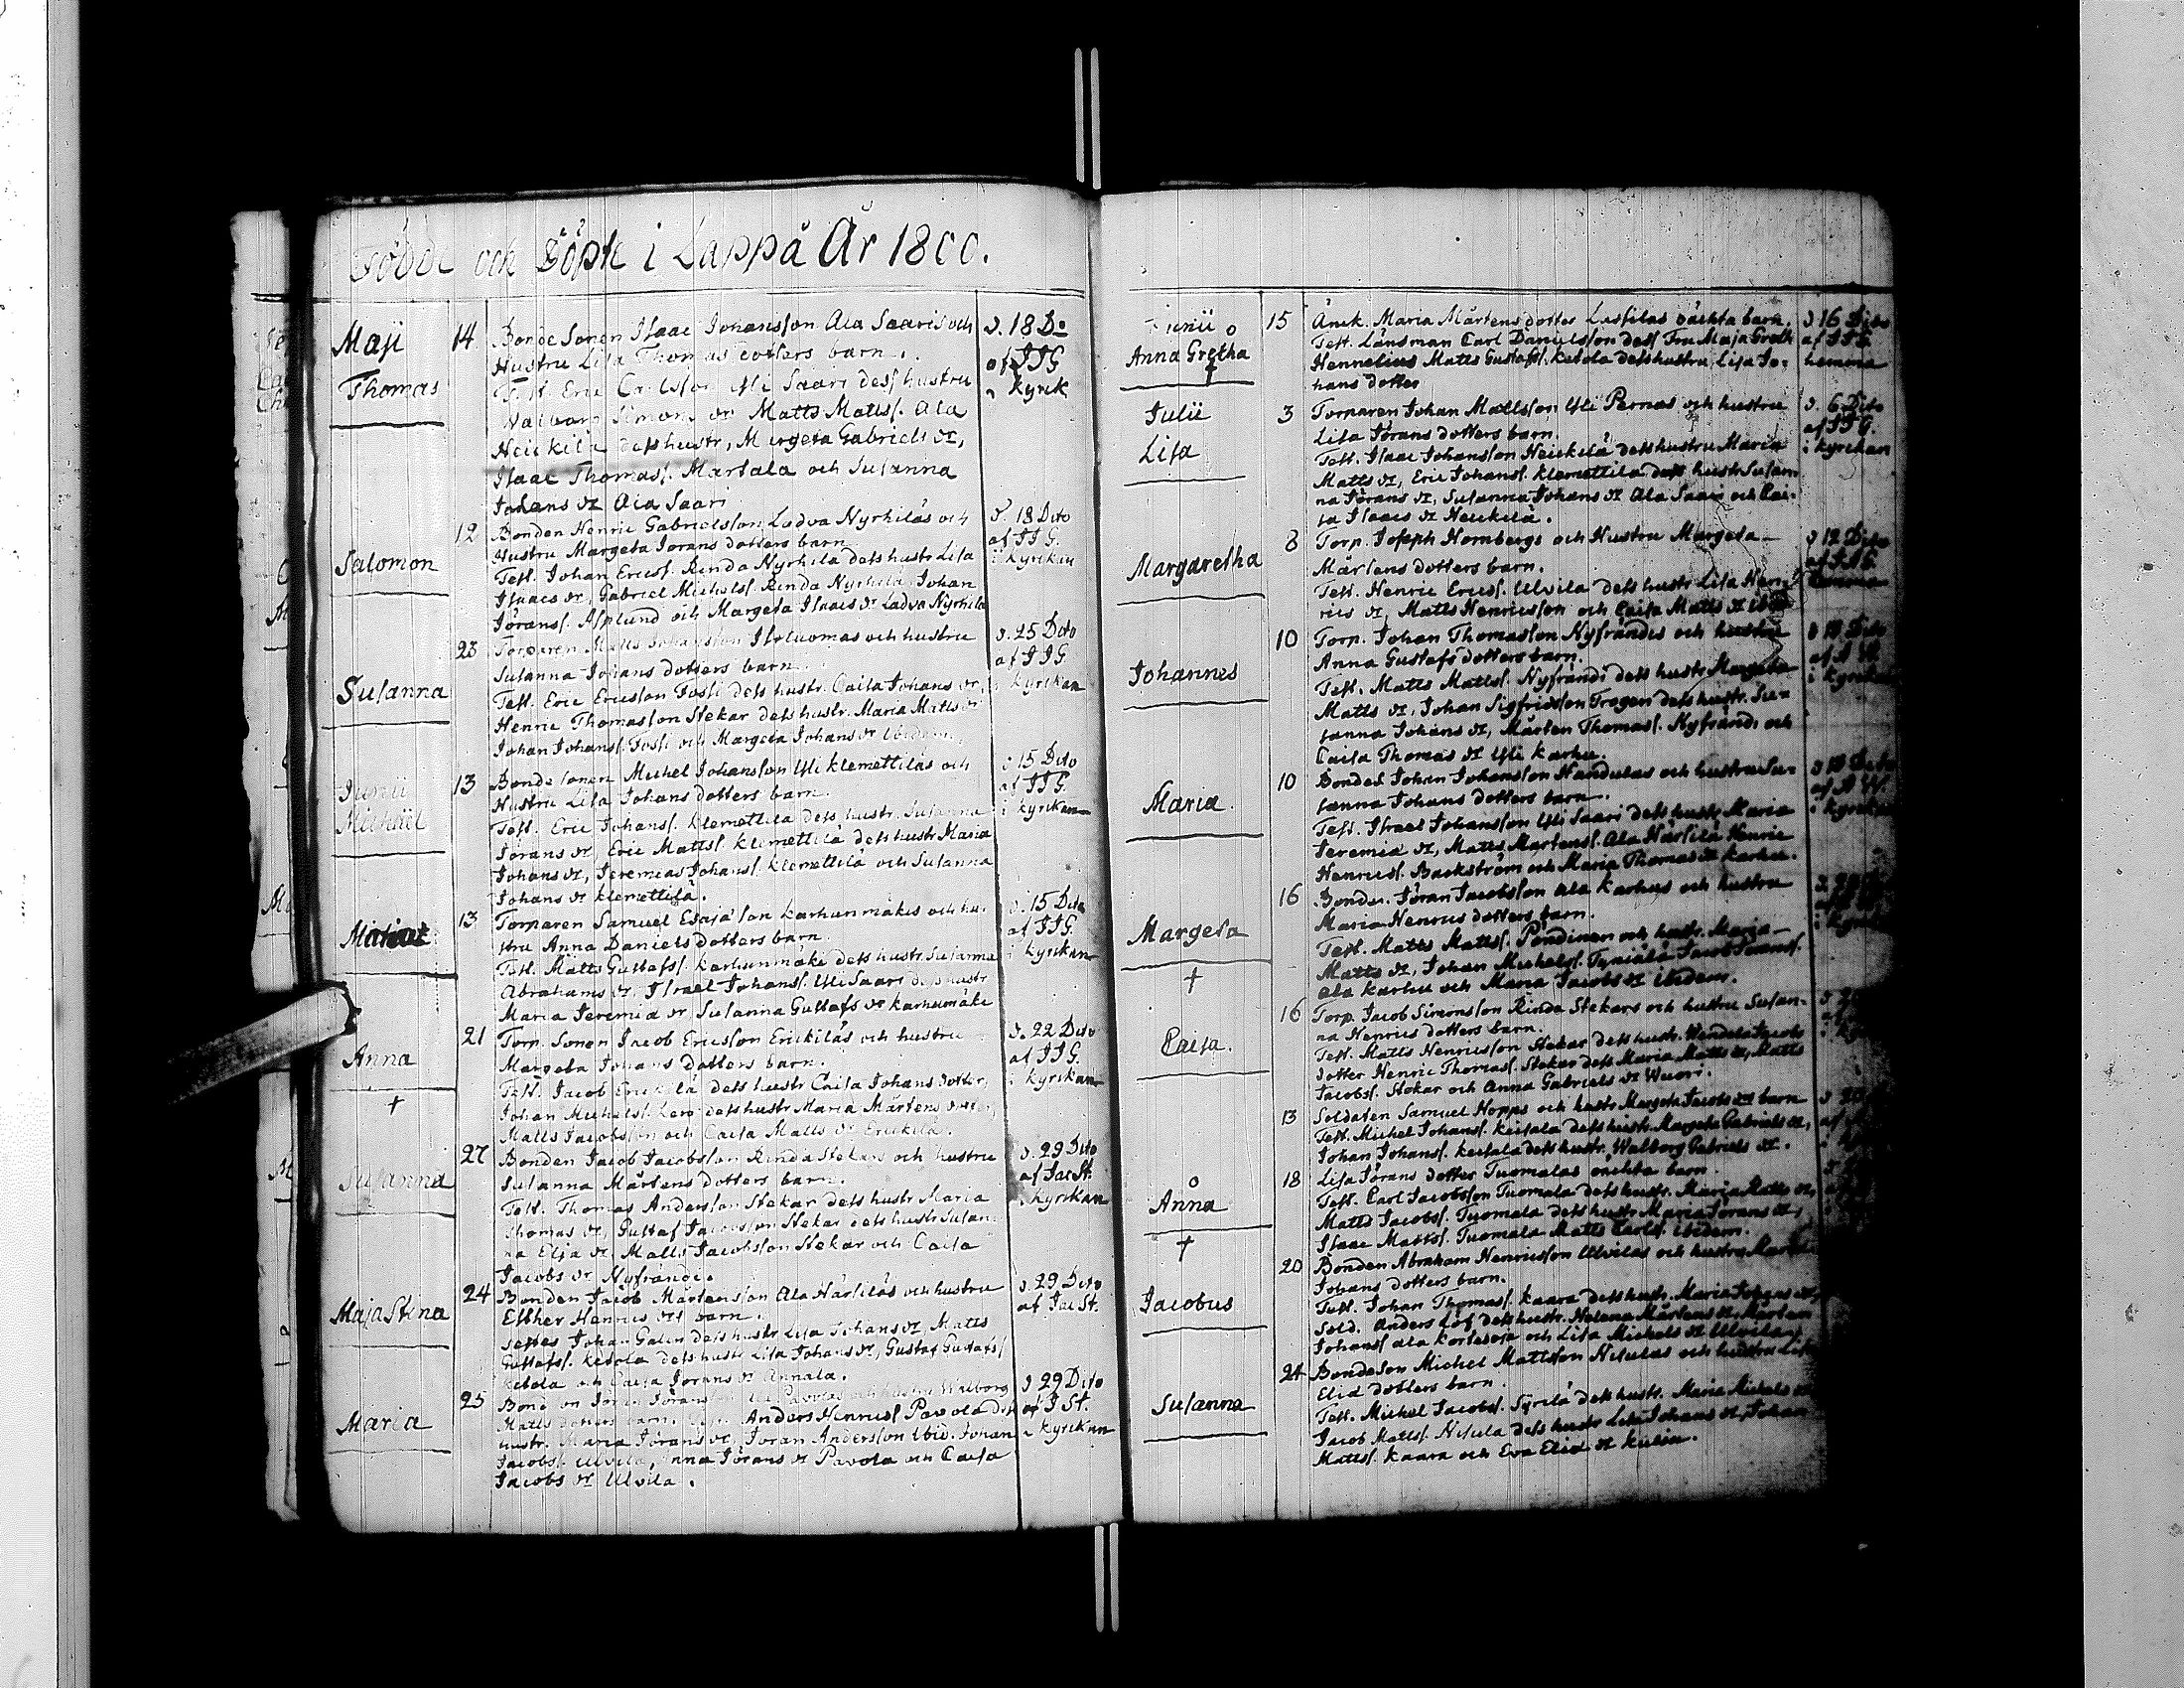 Födde och Döpte i Lappå År 1800.
Maji
Thomas
14
Bonde Sonen Isaac Johansson Ala Saaris och
Hustru Lisa Thomas dotters barn.
Test. Eric Carlsson Yli Saari dess hustru
Walborg Simons dr Matts Matts. Ala
Heickilä dess hustr, Margeta Gabriels dr,
Isaac Thomass. Martala och Susanna
Johans dr Ala Saari
d. 18 Do
af JJG
i kyrk
Salomon
12
Bonden Henric Gabrielsson Ladva Nyrhiläs och
Hustru Margeta Jörans dotters barn
Test. Johan Ericss. Rinda Nyrhilä dess hustr Lisa
Isaacs dr, Gabriel Michelss. Rinda Nyrhilä, Johan
Jöranss. Asplund och Margeta Isaacs dr Ladva Nyrhilä
d. 18 Dito
af JJG.
i kyrckan
Susanna
23
Torparen Matts Johansson Isotuomas och hustru
Susanna Johans dotters barn.
Test. Eric Ericsson Fossi dess hustr. Caisa Johans dr,
Henric Thomasson Stekar dess hustr. Maria Matts dr
Johan Johanss. Fossi och Margeta Johans dr Ibidem.
d. 25 Dito
af JJG.
i kyrckan
Junii
Michäel
13
Bonde sonen Michel Johansson Yli Klemettiläs och
Hustru Lisa Johans dotters barn.
Test. Eric Johanss. Klemettilä dess hustr. Susanna
Jörans dr, Eric Mattss. Klemettilä dess hustr Maria
Johans dr, Jeremias Johanss. Klemettilä och Susanna
Johans dr Klemettilä.
d. 15 Dito
af JJG.
i kyrckan
13
Torparen Samuel Esaiä son Karhunmäkis och hu-
stru Anna Daniels dotters barn.
Test. Matts Gustafss. Karhunmäki dess hustr. Susanna
Abrahams dr, Israel Johanss. Yli Saari dess hustr
Maria Jeremiä dr Susanna Gustafs dr Karhumäki
d. 15 Dito
af JJG.
i kyrckan
Anna
†
21
Torp. Sonen Jacob Ericsson Erickiläs och hustru
Margeta Johans dotters barn.
Test. Jacob Erickilä dess hustr Caisa Johans dotter,
Johan Michelss. Lero dess hustr Maria Mårtens dotter,
Matts Jacobsson och Caisa Matts dr Erickilä.
d. 22 Dito
af JJG.
i kyrckan
Susanna
27
Bonden Jacob Jacobsson Rinda Stekars och hustru
Susanna Mårtens dotters barn.
Test. Thomas Andersson Stekar dess hustr Maria
Thomas dr, Gustaf Jacobsson Stekar dess hustr Susan-
na Eliä dr, Matts Jacobsson Stekar och Caisa
Jacobs dr Nyfrändi.
d. 29 Dito
af Jac St.
i kyrckan
Maja Stina
24
Bonden Jacob Mårtensson Ala Härsiläs och hustru
Esther Henrics drs barn.
Testes Johan Galin dess hustr Lisa Johans dr, Matts
Gustafss. Ketola dess hustr Lisa Johans dr, Gustaf Gustafss
Ketola och Caisa Jörans dr Annala.
d. 29 Dito
af Jac St.
Maria
25
Matts dotters barn. Anders Henricss Pavola dess
hustr. Maria Jörans dr, Jöran Andersson Ibid. Johan
Jacobss. Ulvila, Anna Jörans dr Pavola och Caisa
Jacobs dr Ulvila.
d 29 Dito
af J St.
i kyrckan
Junii o
Anna Gretha
†
15
Änck. Maria Mårtens dotter Lassilas oächta barn.
Test. Länsman Carl Danielsson dess Fru Maja Greth
Hennelius Matts Gustafss. Ketola dess hustru Lisa Jo-
hans dotter
d 16 Dito
af JJG.
hemma
Julii
Lisa
3
Torparen Johan Mattsson Yli Pernas och hustru
Lisa Jörans dotters barn.
Test. Isaac Johansson Heickilä dess hustru Maria
Matts dr, Eric Johanss. Klemettila dess hustr Susan-
na Jörans dr, Susanna Johans dr Ala Saari och Cai-
sa Isaacs dr Heickilä.
d. 6 Dito
af JJG.
i kyrckan
Margaretha
8
Torp. Joseph Hornbergs och Hustru Margeta
Mårtens dotters barn.
Test. Henric Ericss. Ulvila dess hustr Lisa Hen-
rics dr, Matts Henricsson och Caisa Matts dr
d 12 Dito
hemma
Johannes
10
Torp. Johan Thomasson Nyfrändis och hustru
Anna Gustafs dotters barn.
Test. Matts Mattss. Nyfrändi dess hustr Margeta
Matts dr, Johan Sigfridsson Trogen dess hustr. Su-
sanna Johans dr, Mårten Thomass. Nyfrändi och
Caisa Thomas dr Yli Karhu.
Maria
10
Bonden Johan Johansson Handulas och hustru Su-
sanna Johans dotters barn.
Test. Israel Johansson Yli Saari dess hustr Maria
Jeremiä dr, Matts Mårtenss. Ala Härsilä Henric
Henricss. Backström och Maria Thomas dr Karhu.
Margeta
†
16
Bonden. Jöran Jacobsson Ala Karhus och hustru
Maria Henrics dotters barn.
Test. Matts Mattss. Pändinen och hustr. Maria
Matts dr, Johan Michelss.
Ala Karhu och Maria Jacobs dr ibidem.
Caisa.
16
Torp. Jacob Simonsson Rinda Stekars och hustru Susan-
na Henrics dotters barn.
Test. Matts Henricsson Stekar dess hustr.
dotter Henric Thomass. Stekar dess Maria Matts dr, Matts
Jacobss. Stekar och Anna Gabriels dr Wuori.
13
Soldaten Samuel Hopps och hustr Margeta Jacobs drs barn
Test. Michel Johanss. Keisala dess hustr. Margeta Gabriels dr,
Johan Johanss. Keisala dess hustr. Walborg Gabriels dr.
o
Anna
†
18
Lisa Jörans dotter Tuomalas oächta barn.
Test. Carl Jacobsson Tuomala dess hustr. Maria Matts dr,
Matts Jacobss. Tuomala dess hustr Maria Jörans dr,
Isaac Mattss. Tuomala Matts Carlss. ibidem.
Jacobus
20
Bonden Abraham Henricsson Ulvilas och hustru
Johans dotters barn.
Test. Johan Thomass. Kaara dess hustr. Maria Johans dr,
Sold. Anders Löf dess hustr. Helena Mårtens dr, Mårten
Johanss Ala Korteoja och Lisa Michels dr Ulvila
Susanna
24
Bondeson Michel Mattsson Nisulas och hustru Lisa
Eliä dotters barn.
Test. Michel Jacobss. Syrilä dess hustr. Maria Michels
Jacob Mattss. Nisula dess hustr Lisa Johans dr, Johan
Mattss. Kaara och Eva Eliä dr